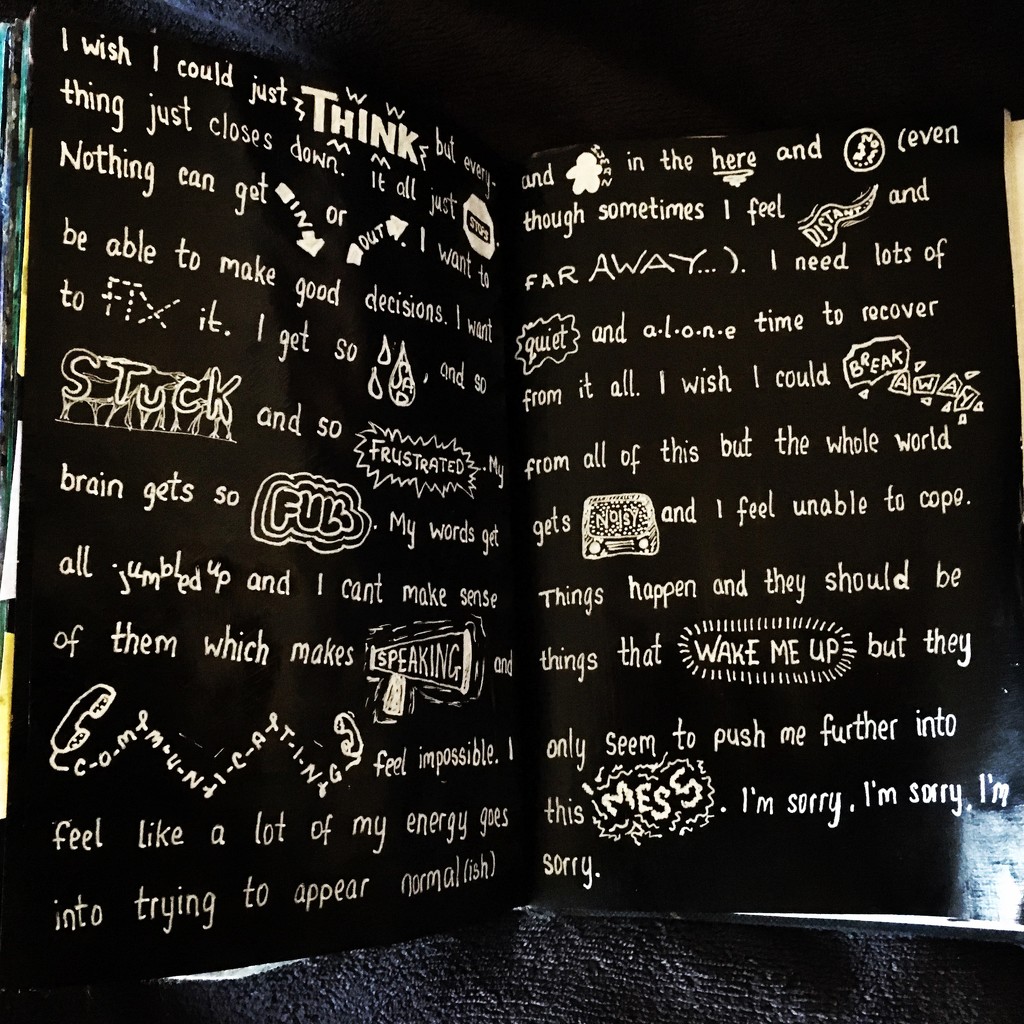 I wish I could just THINK but every-
thing just closes down. It all just STOPS
Nothing can get IN or OUT. I want to
be able to make good decisions. I want
to FIX it. I get so SAD, and so
STUCK and so FRUSTRATED. My
brain gets so FULL. My words get
all jumbled up and I cant make sense
of them which makes SPEAKING and
COMMUNICATING feel impossible. I
feel like a lot of my energy goes
into trying to appear normal(ish)
and HUMAN in the here and NOW (even
though sometimes I feel DISTANT and
FAR AWAY...). I need lots of
quiet and a.l.o.n.e time to recover
from it all. I wish I could BREAK AWAY
from all of this but the whole world
gets NOISY and I feel unable to cope.
Things happen and they should be
things that WAKE ME UP but they
only seem to push me further into
this MESS. I'm sorry, I'm sorry, I'm
sorry.